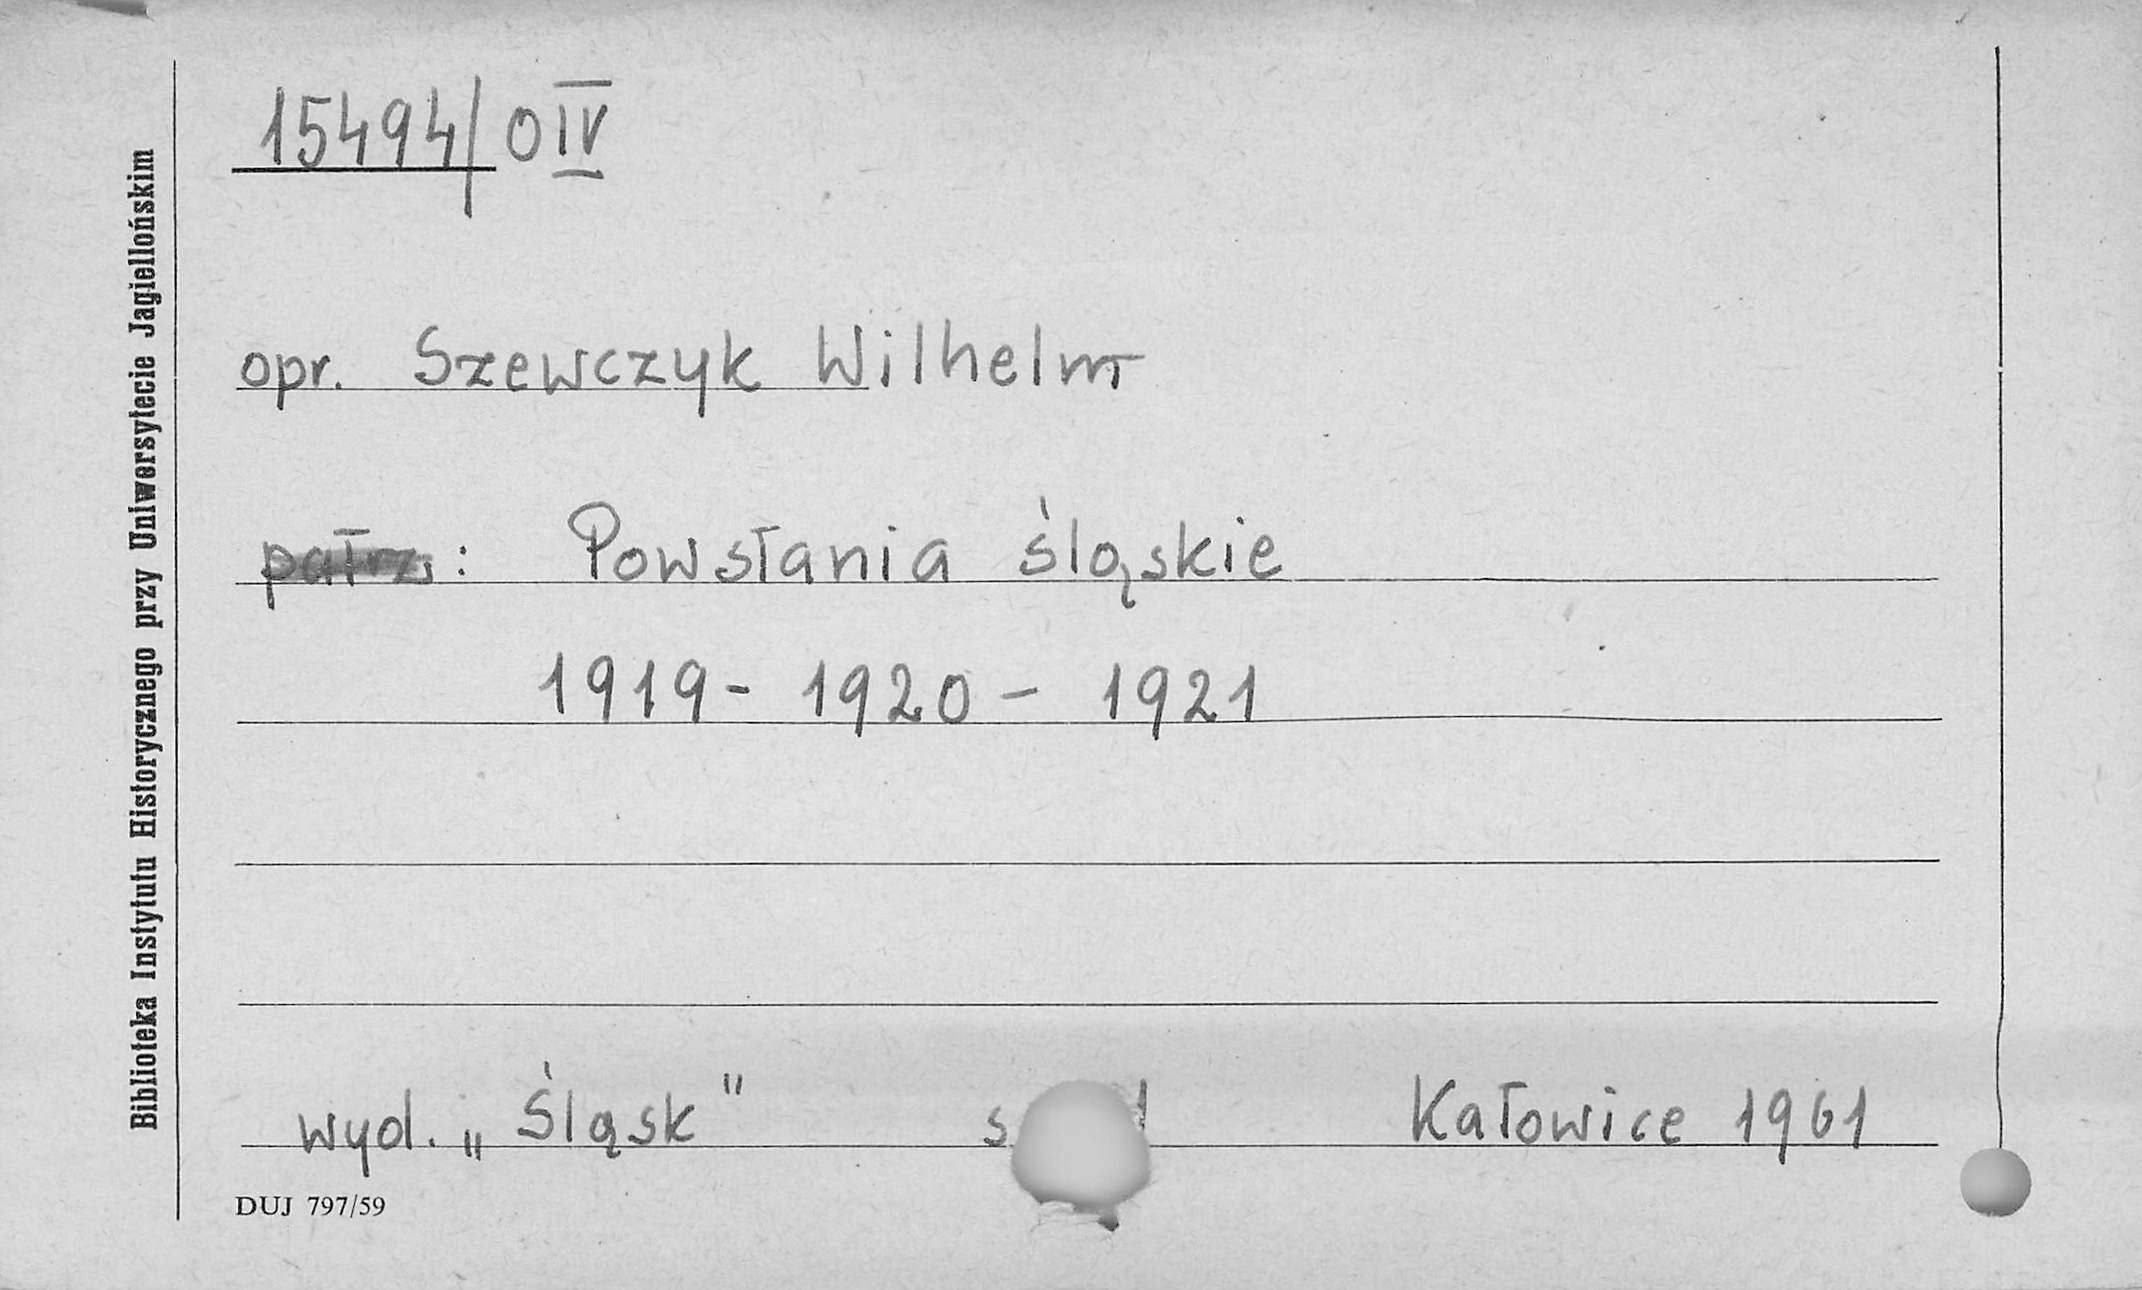 15494/0 IV
opr. Szewczyk Wilhelm
patrz: Powstania śląskie
1919 - 1920 - 1921
wyd. „Śląsk" s. Katowice 1961
DUJ 797/59
Biblioteka Instytutu Historycznego przy Uniwersytecie Jagiellońskim